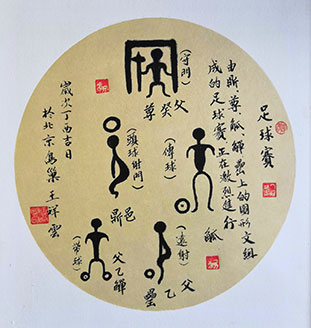 足球賽
由斝、尊、觚、觶、罍上的圖形文組
成的足球賽正在激烈進行
(守門)
父癸尊
(傳球)
觚
(頭球射門)
邑鼎
(遠射)
父乙罍
(帶球)
父乙觶
歲次丁酉吉日
於北京鳥巢 王祥雲